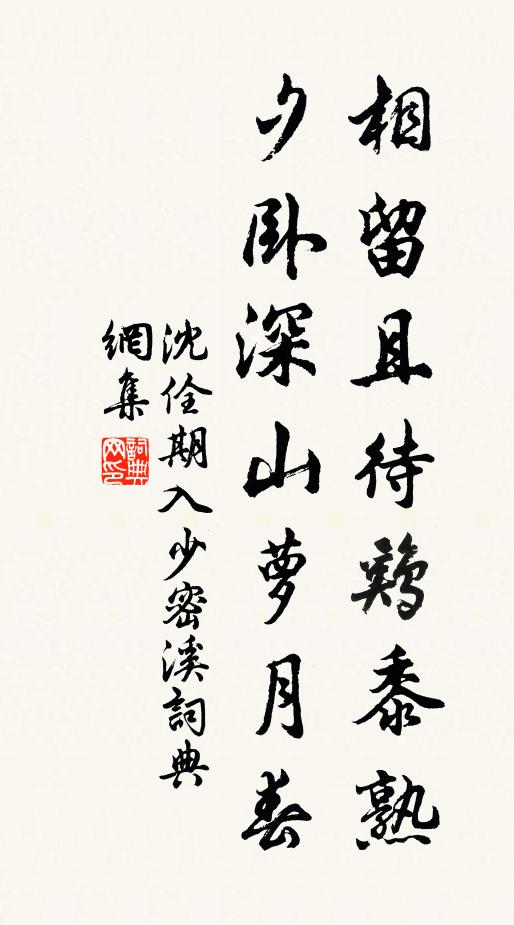 相留且待鷄黍熟
夕臥深山萝月春
沈佺期入少密溪詞典
網集
詞典
网印